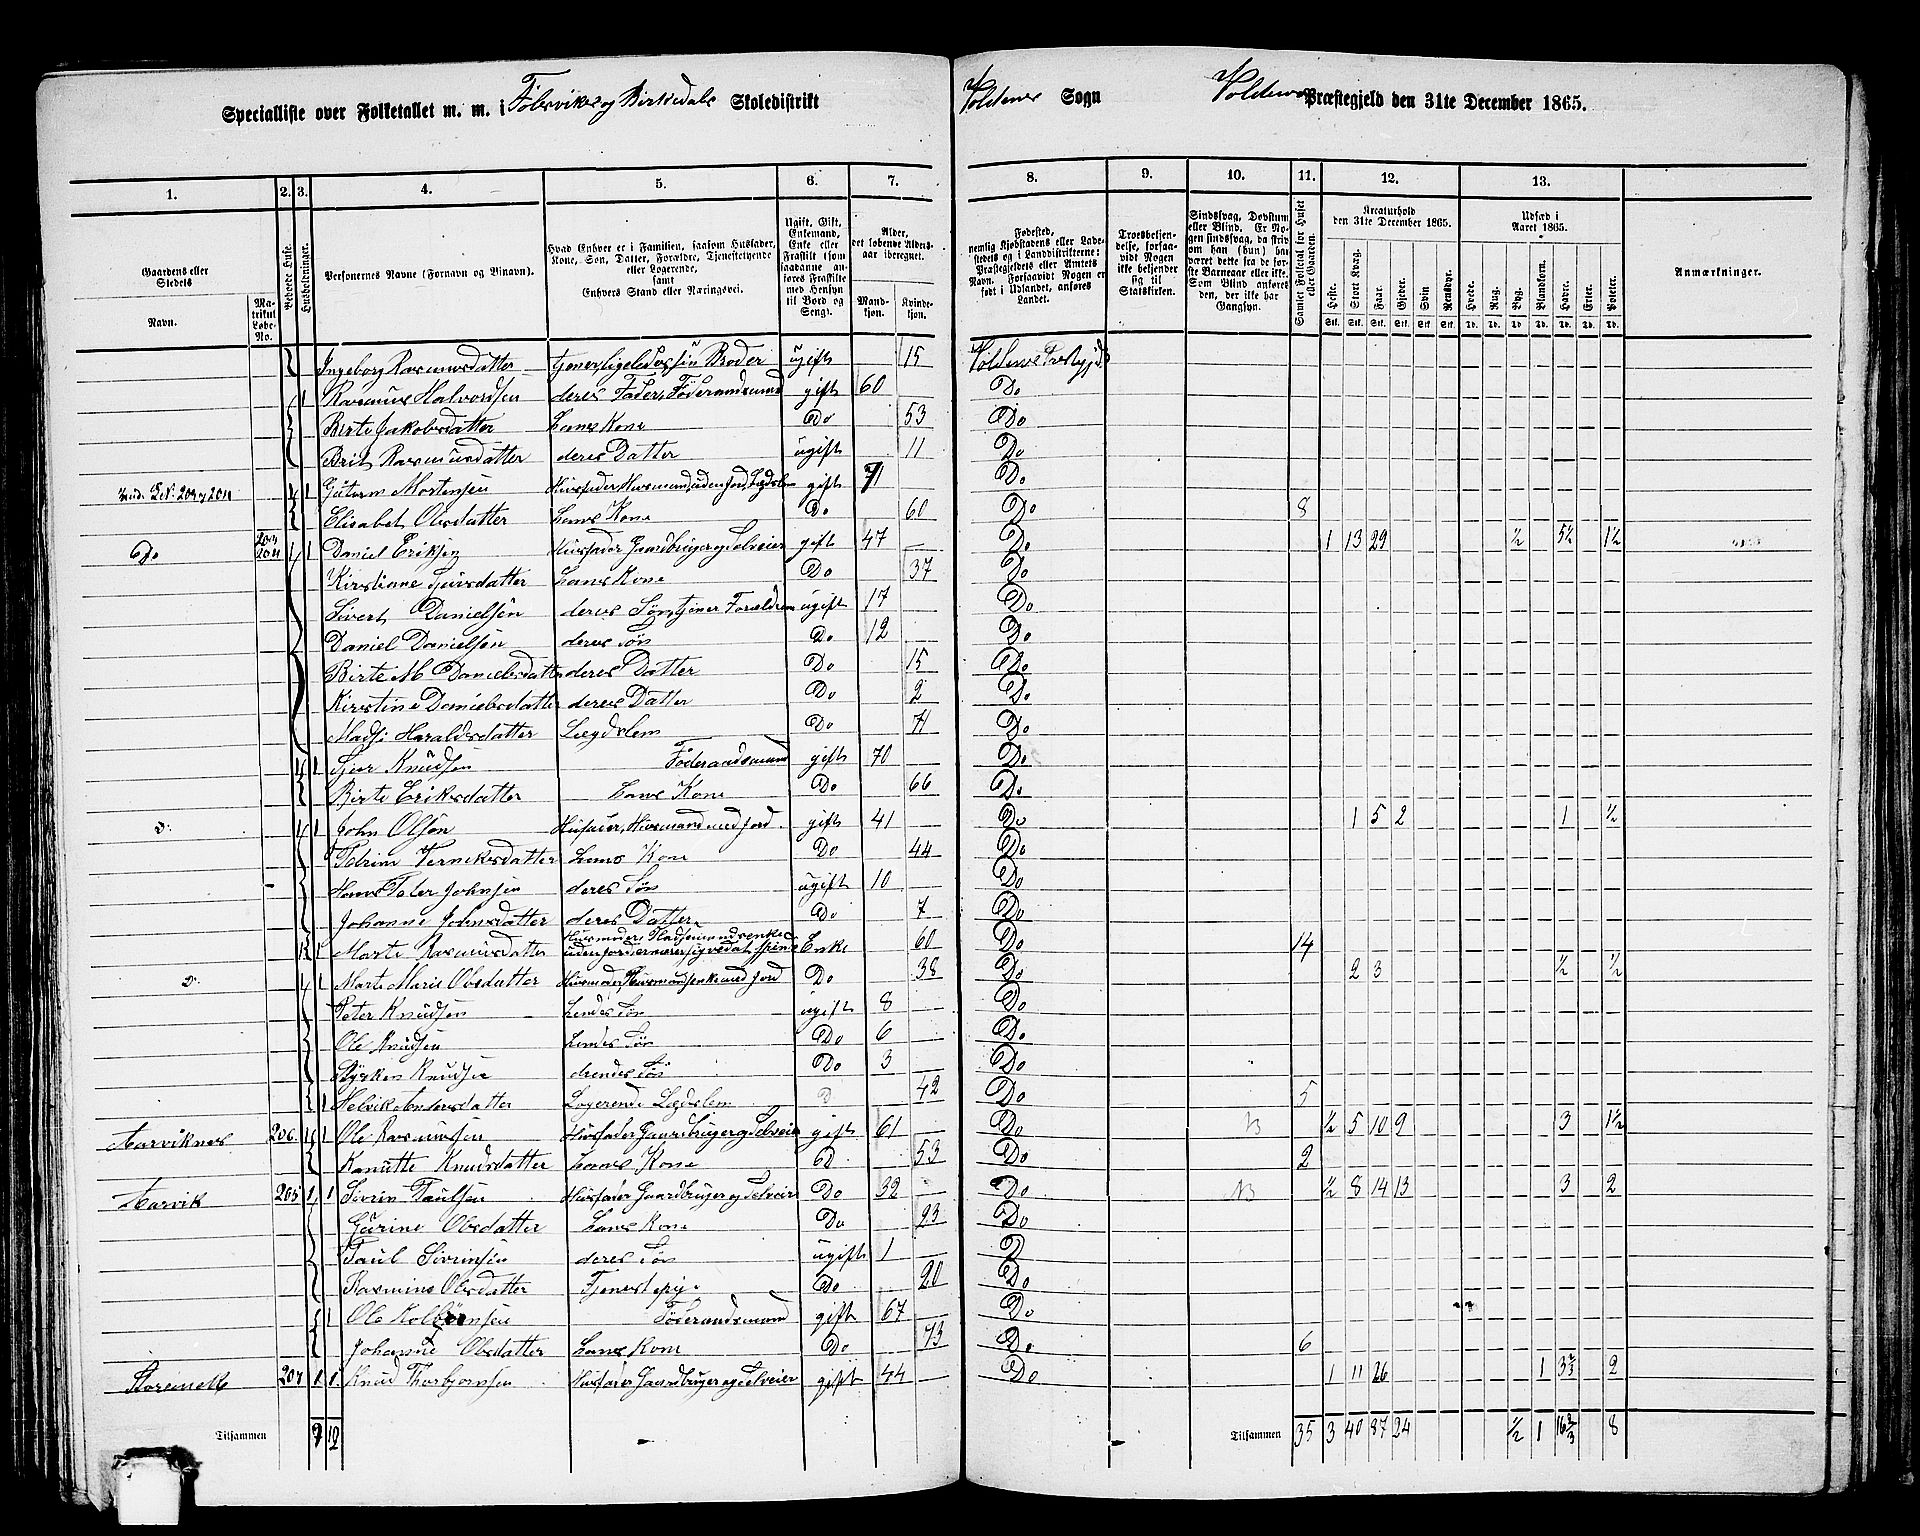 Specialliste over Folketallet m. m. i Fölsviks og Birkedals Skoledistrikt Voldens Sogn Voldens Præstegjeld den 31te December 1865.
1. 2. 3. 4. 5. 6. 7. 8. 9. 10. 11. 12. 13.
Gaardens eller Stedets Navn.
Matrikul Løbe-No.
Beboede Huse.
Husholdninger.
Personernes Navne (Fornavn og Tilnavn).
Hvad Enhver er i Familien, saasom Husfader, Kone, Søn, Datter, Forældre, Tjenestetyende eller Logerende, samt Enhvers Stand eller Næringsvei.
Ugift, Gift, Enkemand, Enke eller Fraskilt (som saadanne anføres Fraskilte med Hensyn til Bord og Seng).
Alder, det løbende Aldersaar iberegnet.
Mandkjøn. Kvindekjøn.
Fødested, nemlig Kjøbstadens eller Ladestedets og i Landdistrikterne: Præstegjeldets eller Amtets Navn. Forsaavidt Nogen er født i Udlandet, anføres Landet.
Troesbekjendelse, forsaavidt Nogen ikke bekjender sig til Statskirken.
Sindssvag, Døvstum eller Blind. Er Nogen sindssvag, da strives om han (hun) har været det fra de første Barneaar eller ikke. Som Blind anføres den, der ikke har Gangsyn.
Samlet Folketal for Huset eller Gaarden.
Kreaturhold den 31te December 1865.
Heste. Stort Kvæg. Faar. Gjeder. Svin. Rensdyr.
Udsæd i Aaret 1865.
Hvede. Rug. Byg. Blandkorn. Havre. Erter. Poteter.
Anmærkninger.
Ingeborg Rasmusdatter ugift 15
Rasmus Halvordsen deres Fader, Föderaadsmand gift 60 Do
Birte Jakobsdatter hans Kone Do 53 Do
Brit Rasmusdatter deres Datter ugift 11 Do
1 1 Guttorm Mortensen Husfader, Husmand uden Jord, Lægdslem gift 71 Do
Elisabet Olsdatter hans Kone Do 60 Do 8
Do 1 1 Daniel Eriksen Husfader Gaardbruger og Selveier gift 47 Do 1 13 29 ½ 5½ 1½
Kirstiane Sjursdatter hans Kone Do 37 Do
Sivert Danielsen deres Søn, tjener Forældrene ugift 17 Do
Daniel Danielsen deres Søn Do 12 Do
Birte M Danielsdatter deres Datter Do 15 Do
Kirstine Danielsdatter deres Datter Do 2 Do
Madsi Haraldsdatter Lægdslem Do 71 Do
1 Sjur Knudsen Föderaadsmand gift 70 Do
Birte Eriksdatter hans Kone Do 66 Do
1 1 John Olsen Husfader, Husmand med Jord gift 41 Do 1 5 2 1 ½
hans Kone Do 44 Do
Hans Peter Johnsen deres Søn ugift 10 Do
Johanne Johnsdatter deres Datter Do 7 Do
1 Marte Rasmusdatter Enke 60 Do 14
1 1 Marte Marie Olsdatter Husmoder, Husmandsenke med Jord Do 38 Do 2 3 ½ ½
Peter Knudsen hendes Søn ugift 8 Do
Ole Knudsen hendes Søn Do 6 Do
Styrker Knudsen hendes Søn Do 3 Do
1 Andersdatter Logerende Lægdslem D 42 Do 5
Aarviknes 206 1 1 Ole Rasmussen Husfader Gaardbruger og Selveier gift 61 Do ½ 5 10 9 3 1½
Kanutte Knudsdatter hans Kone D 53 Do 2
Aarvik 205 1 1 Sivrin Paulsen Husfader Gaardbruger og Selveier Do 32 Do ½ 8 14 13 3 2
Gurine Olsdatter hans Kone Do 23 Do
Paul Sivrinsen deres Søn ugift 1 D
Rasmine Olsdatter Tjenestepige Do 20 Do
1 Ole Kolbjørnsen Föderaadsmand gift 67 Do
Johanne Olsdatter hans Kone Do 73 Do 6
207 1 1 Knud Thorbjørnsen Husfader Gaardbruger og Selveier gift 44 Do 1 11 26 1 3⅔ 2
Tilsammen 7 12 Tilsammen 35 3 40 87 24 ½ 1 16⅔ 8